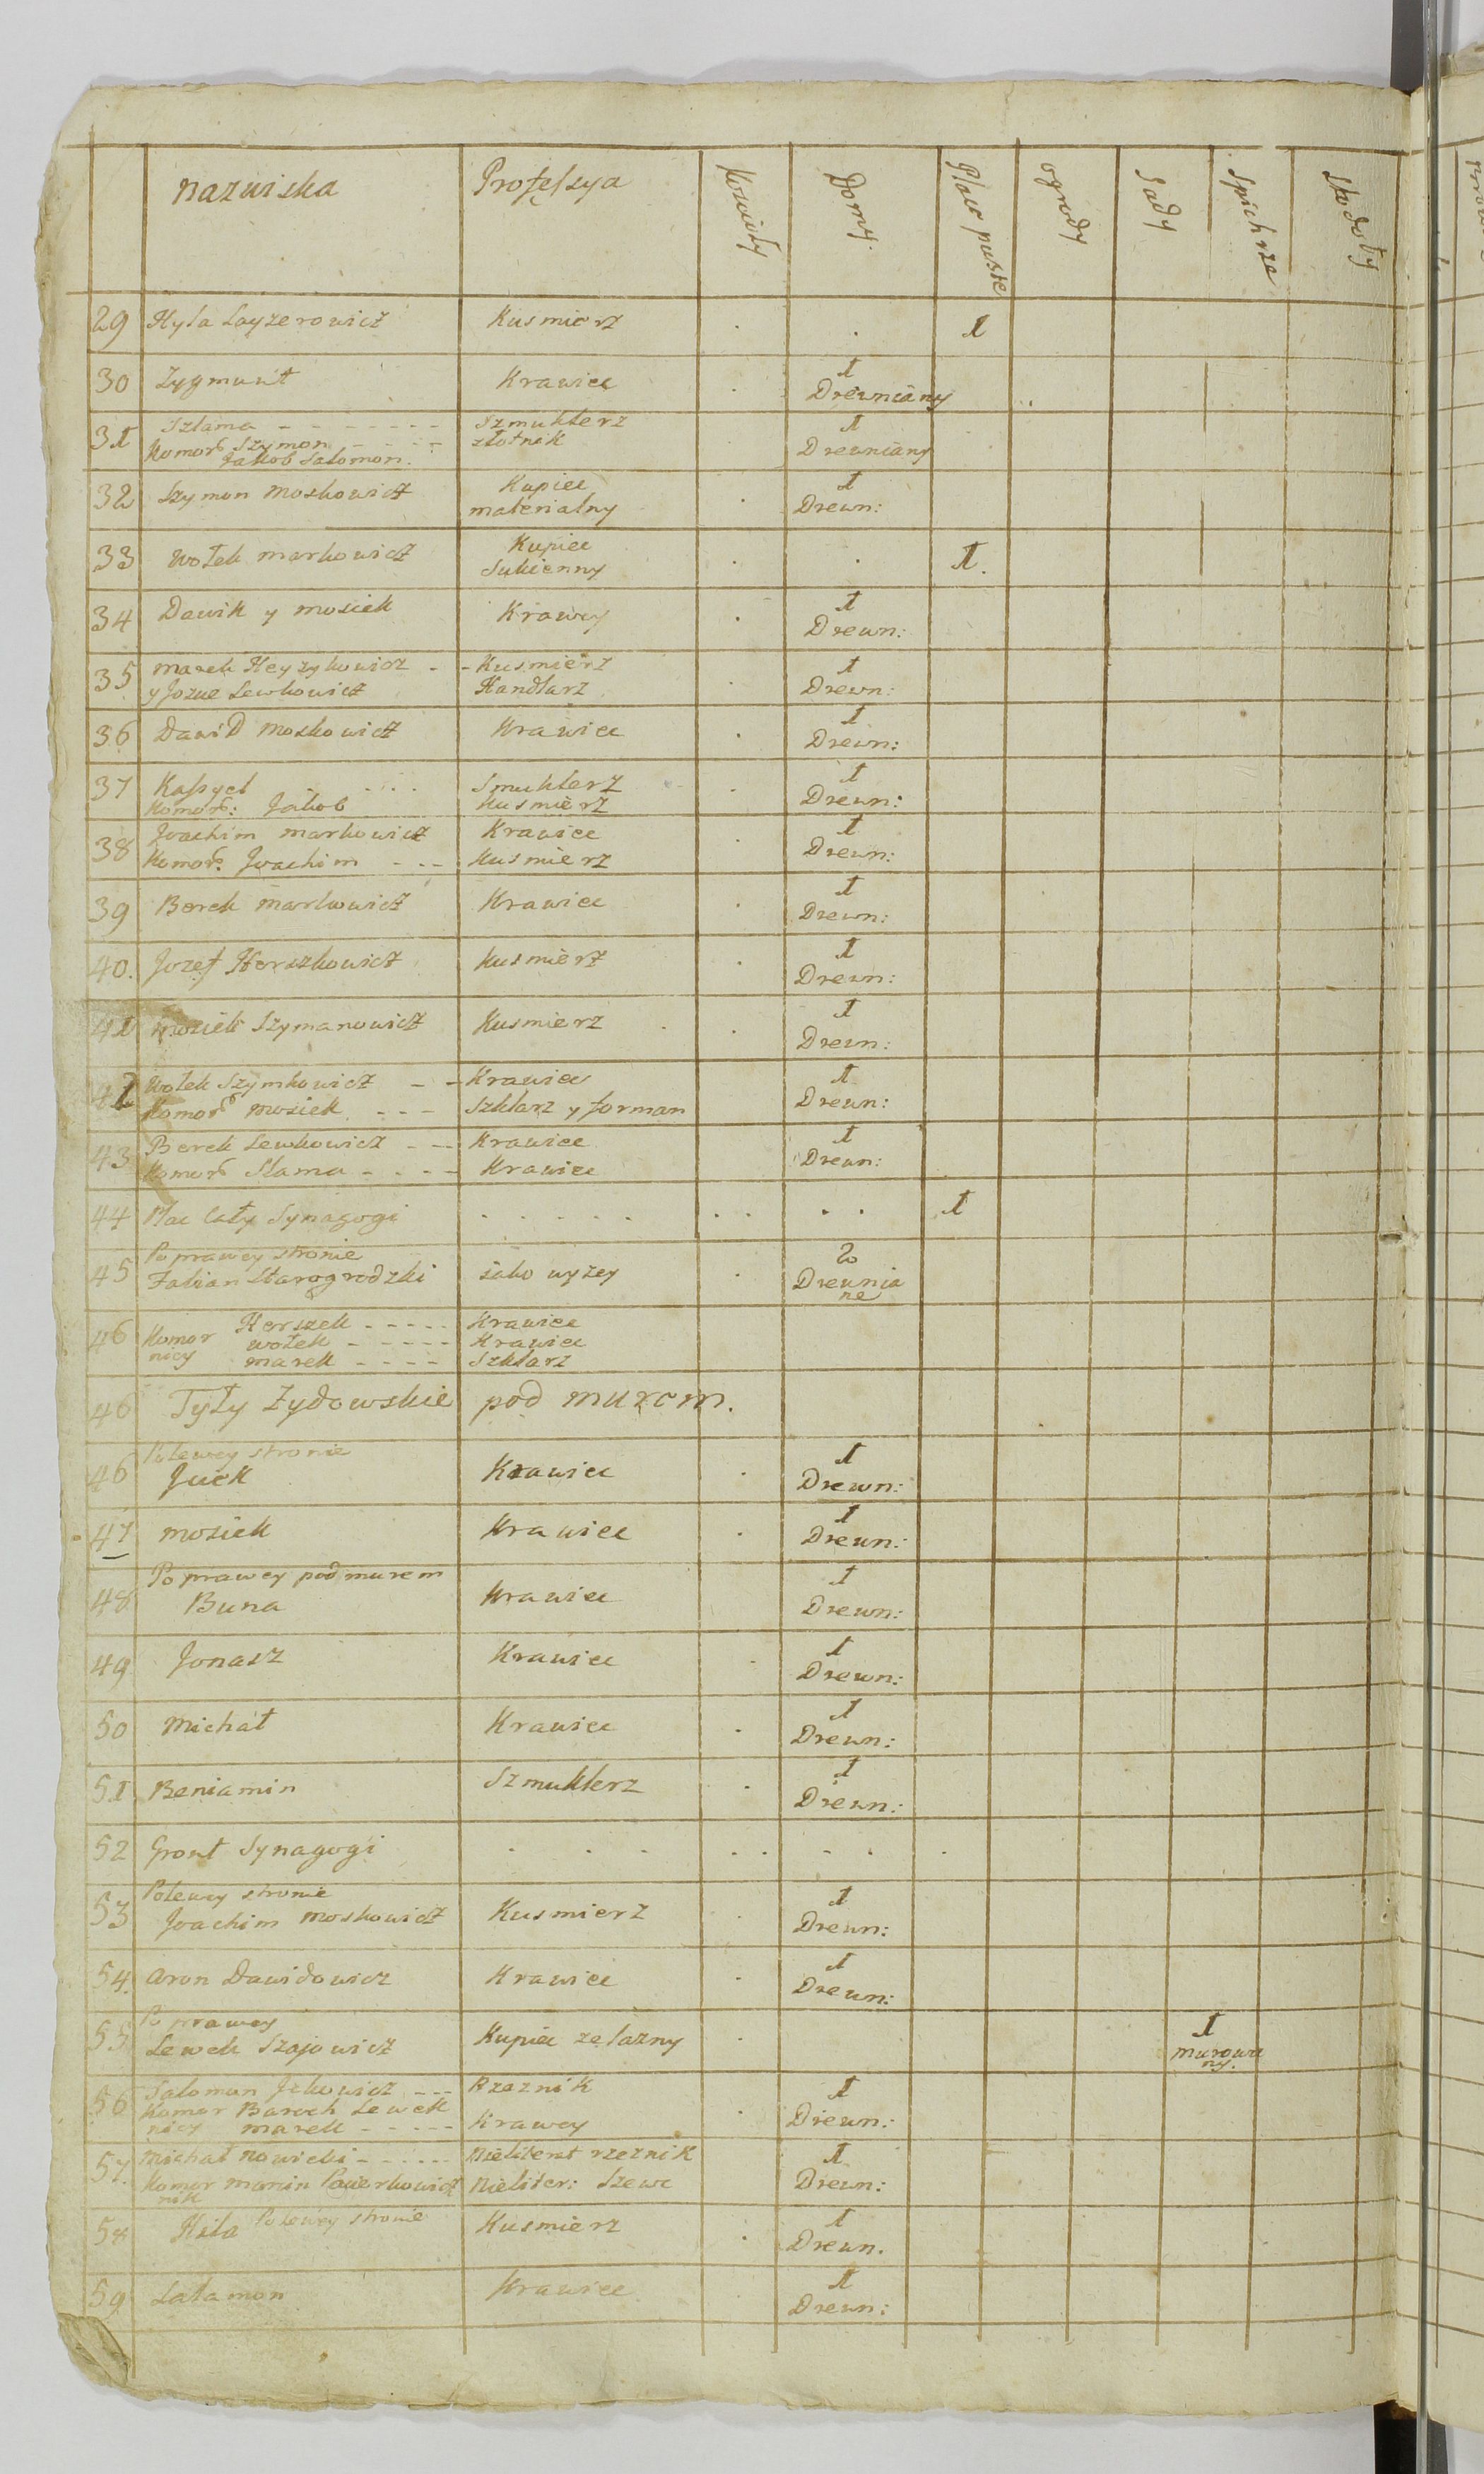 nazwiska Professya Kościoły Domy. Place puste ogrody Sady Spichrze Stodoły
29 Hyla Layzerowicz Kusmierz 1
30 Zygmunt Krawiec 1
Drewniany
31 Szlama - - - - - - - Szmuklerz 1
Komor Szymon - - - - złotnik Drewniany
Jakob Salomon.
32 Szymon Moskowicz Kupiec 1
materialny Drewn:
33 Wolek Markowicz Kupiec 1.
Sukienny
34 Dawik y Mosiek Krawcy 1
Drewn:
35 Marek Heyzykowicz - - Kusmierz 1
y Jozue Lewkowicz Handlarz Drewn:
36 Dawid Moskowicz Krawiec 1
Drewn:
37 Kassyel . . . . Smuklerz 1
Komor: Jakob Kusmierz Drewn:
38 Joachim Markowicz Krawiec 1
Komor: Joachim - - - Kusmierz Drewn:
39 Berek Markowicz Krawiec 1
Drewn:
40. Jozef Herszkowicz Kusmierz 1
Drewn:
41 Mosiek Szymanowicz Kusmierz 1
Drewn:
42 Wolek Szymkowicz - - Krawiec 1
Komor Mosiek - - - Szklarz y forman Drewn:
43 Berek Lewkowicz - - - Krawiec 1
Komor Slama - - - - Krawiec Drewn:
44 Plac cały Synagogi . . . . . . . . . 1
Po prawey stronie 2
45 Fabian Starogrodzki iako wyzey Drewnia
ne
46 Komor Herszek - - - - - Krawiec
nicy wolek - - - - - Krawiec
marek - - - - Szklarz
46 Tyły Zydowskie pod murem.
Po lewey stronie 1
46 Juck Krawiec Drewn:
47 Mosiek Krawiec 1
Drewn:
Po prawey pod murem 1
48 Buna Krawiec Drewn:
49 Jonasz Krawiec 1
Drewn:
50 Michał Krawiec 1
Drewn:
51 Beniamin Szmuklerz 1
Drewn:
52 Gront Synagogi . . . . . - . .
Po lewey stronie 1
53 Joachim Moskowicz Kusmierz Drewn:
54. Aron Dawidowicz Krawiec 1
Drewn:
Po prawey 1
55 Lewek Szajowicz Kupiec zelazny murowa
ny.
56 Salomon Jckowicz - - - Rzeznik 1
Komor Baroch Lewek Drewn:
nicy marek - - - - - Krawcy
57. Michał Nowicki - - - - - Nieliterat rzeznik 1
Komor Marcin Nieliter: Szewc Drewn:
nik
58 Hila Po lewey stronie Kusmierz 1
Drewn.
59 Salamon Krawiec 1
Drewn: